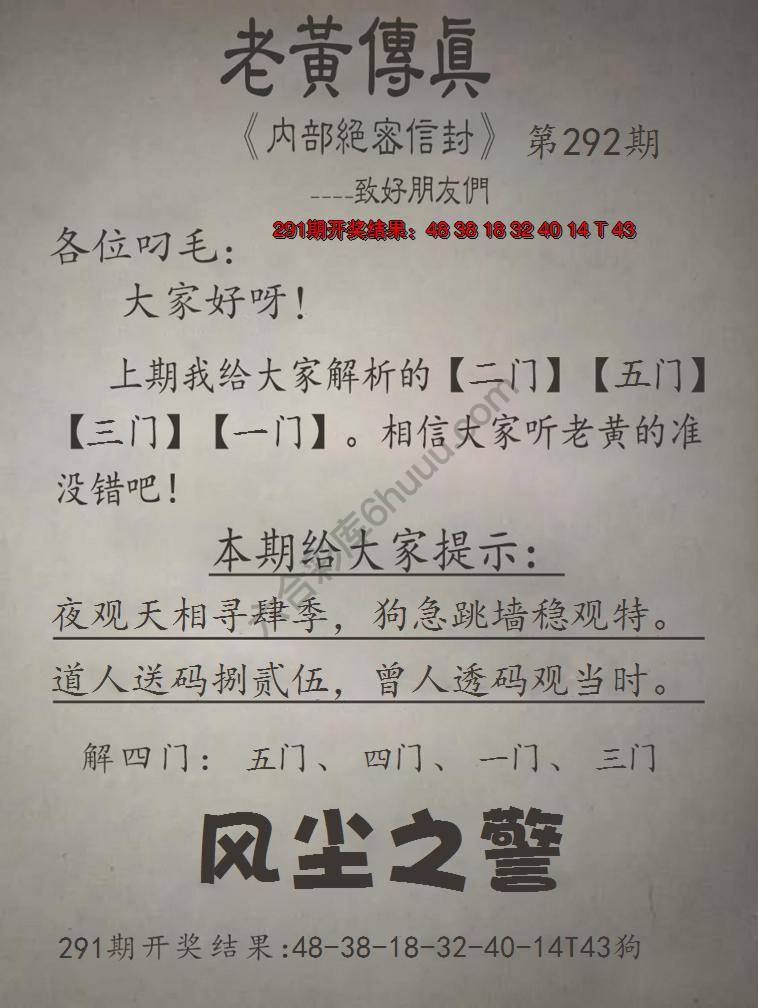 老黃傳眞
《内部絕密信封》 第292期
----致好朋友們
291期开奖结果：48 38 18 32 40 14 T 43
各位叼毛：
大家好呀！
上期我给大家解析的【二门】【五门】
【三门】【一门】。相信大家听老黄的准
没错吧！
本期给大家提示：
夜观天相寻肆季，狗急跳墙稳观特。
道人送码捌贰伍，曾人透码观当时。
解四门：五门、四门、一门、三门
风尘之警
291期开奖结果:48-38-18-32-40-14T43狗
六合彩库6huuu.com